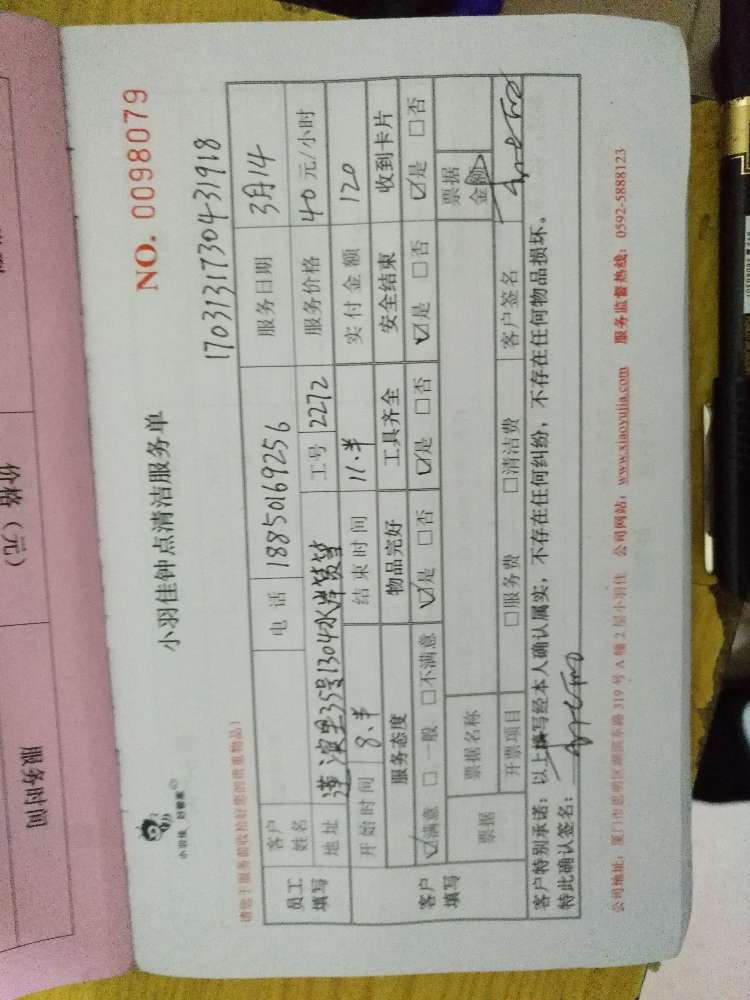 NO. 0098079
小羽佳钟点清洁服务单
1703131730431918
小羽佳 好管家
请您于服务前收拾好您的贵重物品!
员工填写
客户姓名
电话 18850169256
服务日期 3月14
地址 莲滨里35号1304水岸筼筜
工号 2272
服务价格 40元/小时
开始时间 8.半
结束时间 11.半
实付金额 120
客户填写
服务态度 物品完好 工具齐全 安全结束 收到卡片
☑满意 □一般 □不满意 ☑是 □否 ☑是 □否 ☑是 □否 ☑是 □否
票据 票据名称 票据金额
开票项目 □服务费 □清洁费 客户签名
客户特别承诺:以上填写经本人确认属实,不存在任何纠纷,不存在任何物品损坏。
特此确认签名:
公司地址:厦门市思明区湖滨东路319号A幢2层小羽佳 公司网站:www.xiaoyujia.com 服务监督热线:0592-5888123
价格(元)
服务时间